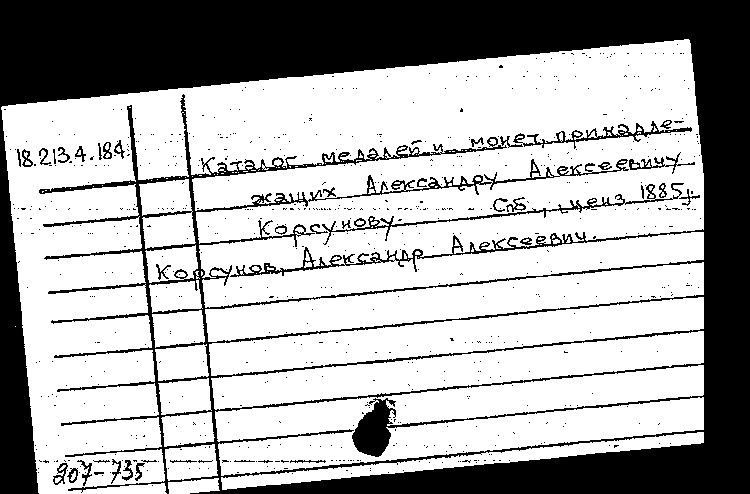 18.213.4.184.
Каталог медалей и монет, принадле-
жащих Александру Алексеевичу
Корсунову. Спб., ценз 1885г.
Корсунов, Александр Алексеевич.
207-735